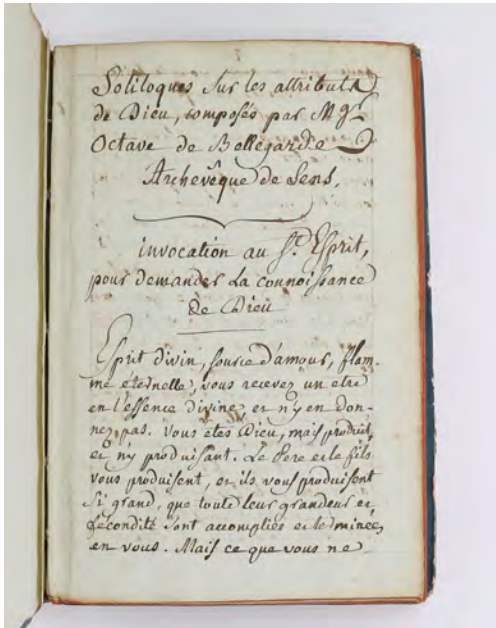 Soliloques sur les attributs
de Dieu, composés par Mgr
Octave de Bellegarde
Archevêque de Sens,
invocation au St. Esprit,
pour demander la connoissance
de Dieu
Esprit divin, source d'amour, flam-
me éternelle, vous recevez un etre
en l'essence divine, et n'y en don-
nez pas. Vous etes Dieu, mais produit,
et n'y produisant. Le Pere et le fils
vous produisent, et ils vous produisent
si grand, que toute leur grandeur et
fécondité sont accomplies et terminées
en vous. Mais ce que vous ne